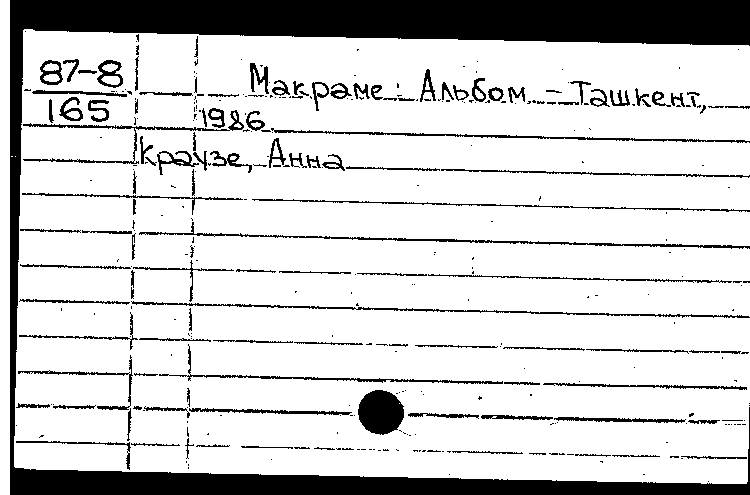 87-8
165
Макраме: Альбом. - Ташкент,
1986.
Краузе, Анна